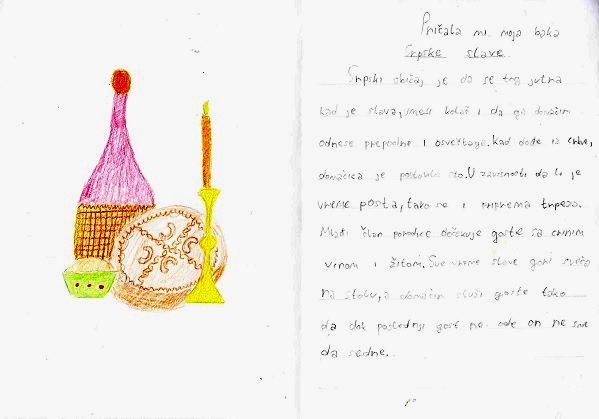 Pričala mi moja baka
Srpske slave
Srpski običaj je da se tog jutra
kad je slava, umesi kolač i da ga domaćin
odnese prepodne i osveštaga. kad dođe iz crkve,
domaćica je postavila sto. U zavisnosti da li je
vreme posta, tako se i priprema trpeza.
Mlađi član porodice dočekuje goste sa crnim
vinom i žitom. Sve vreme slave gori sveća
na stolu, a domaćin služi goste tako
da dok poslednji gost ne ode on ne sme
da sedne.